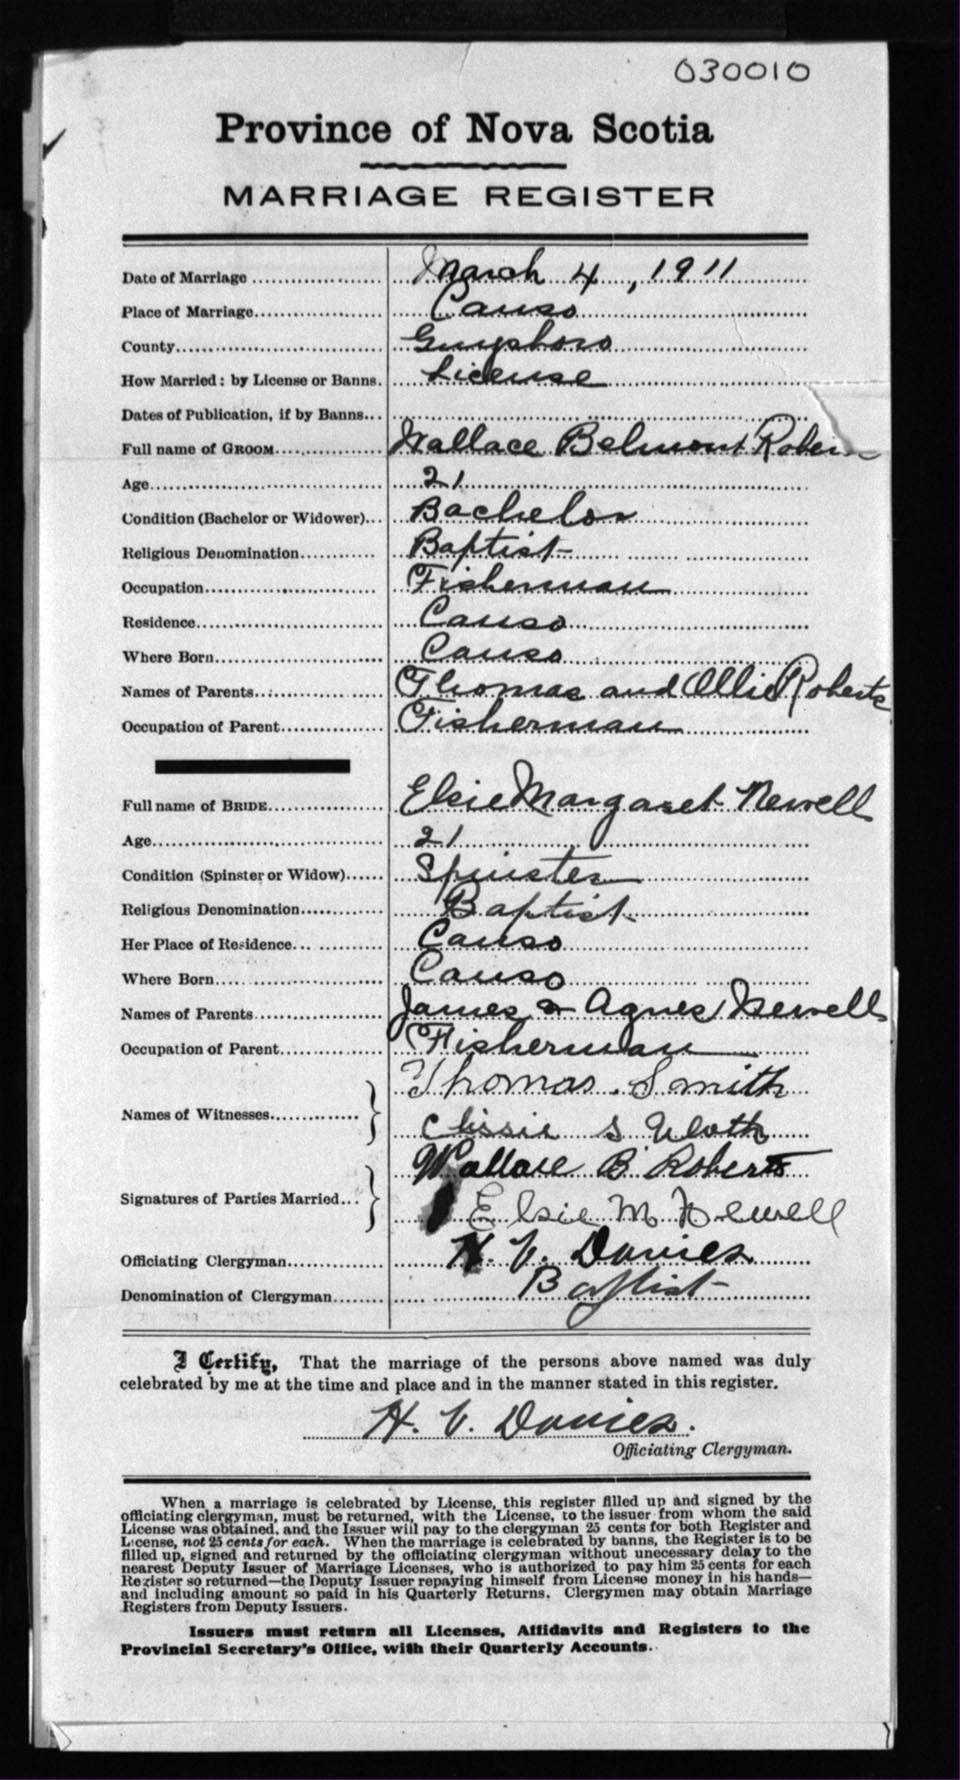 030010
Province of Nova Scotia
MARRIAGE REGISTER
Date of Marriage ..................... March 4, 1911
Place of Marriage................... Canso
County................................ Guysboro
How Married: by License or Banns. License
Dates of Publication, if by Banns...
Full name of GROOM................ Wallace Belmont Rober
Age.................................... 21
Condition (Bachelor or Widower)... Bachelor
Religious Denomination............ Baptist
Occupation........................... Fisherman
Residence............................ Canso
Where Born........................... Canso
Names of Parents................... Thomas and Ollie Roberts
Occupation of Parent............... Fisherman
Full name of BRIDE.................. Elsie Margaret Newell
Age.................................... 21
Condition (Spinster or Widow)...... Spinster
Religious Denomination............ Baptist
Her Place of Residence... .......... Canso
Where Born........................... Canso
Names of Parents................... James & Agnes Newell
Occupation of Parent............... Fisherman
Names of Witnesses............. } Thomas Smith
S
Signatures of Parties Married... } Wallace B Roberts
Elsie M Newell
Officiating Clergyman.............. H. V. Davies
Denomination of Clergyman........ Baptist
I Certify, That the marriage of the persons above named was duly
celebrated by me at the time and place and in the manner stated in this register.
H. V. Davies.
Officiating Clergyman.
When a marriage is celebrated by License, this register filled up and signed by the
officiating clergyman, must be returned, with the License, to the issuer from whom the said
License was obtained, and the Issuer will pay to the clergyman 25 cents for both Register and
License, not 25 cents for each. When the marriage is celebrated by banns, the Register is to be
filled up, signed and returned by the officiating clergyman without unnecessary delay to the
nearest Deputy Issuer of Marriage Licenses, who is authorized to pay him 25 cents for each
Register so returned—the Deputy Issuer repaying himself from License money in his hands—
and including amount so paid in his Quarterly Returns. Clergymen may obtain Marriage
Registers from Deputy Issuers.
Issuers must return all Licenses, Affidavits and Registers to the
Provincial Secretary's Office, with their Quarterly Accounts.